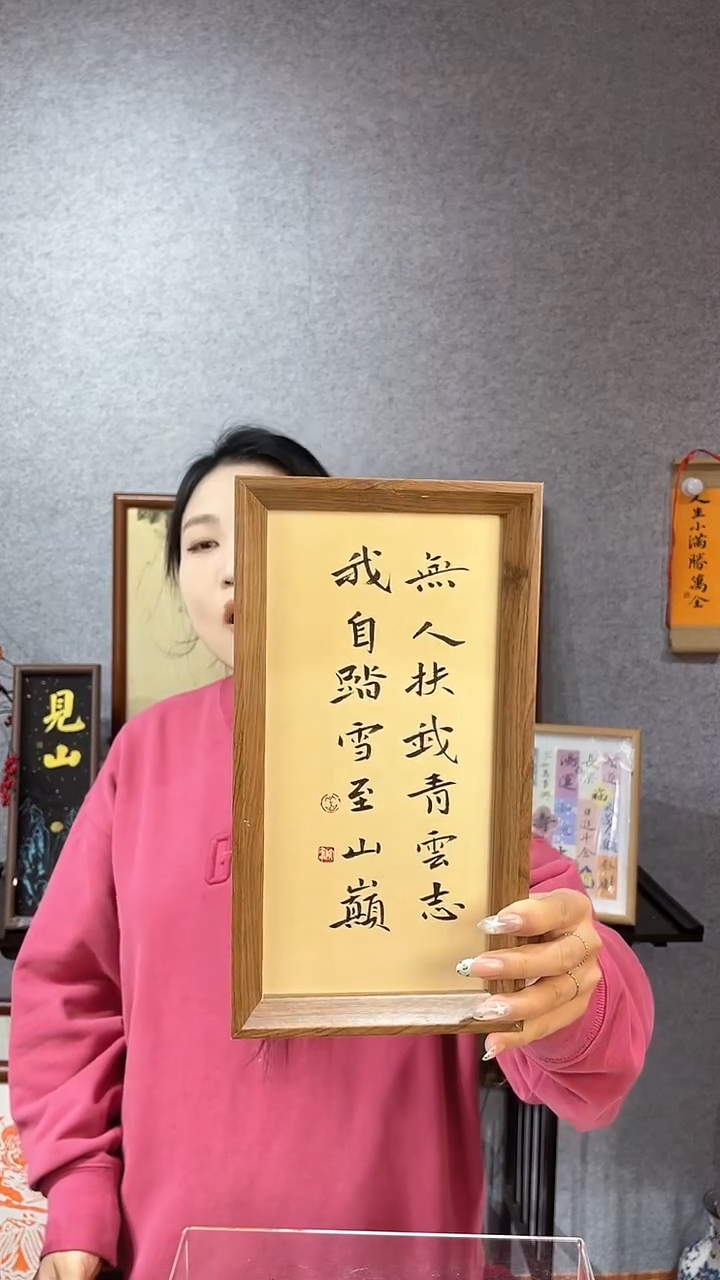 無人扶我青雲志
我自踏雪至山巔
見山
人生小滿勝萬全
鴻運